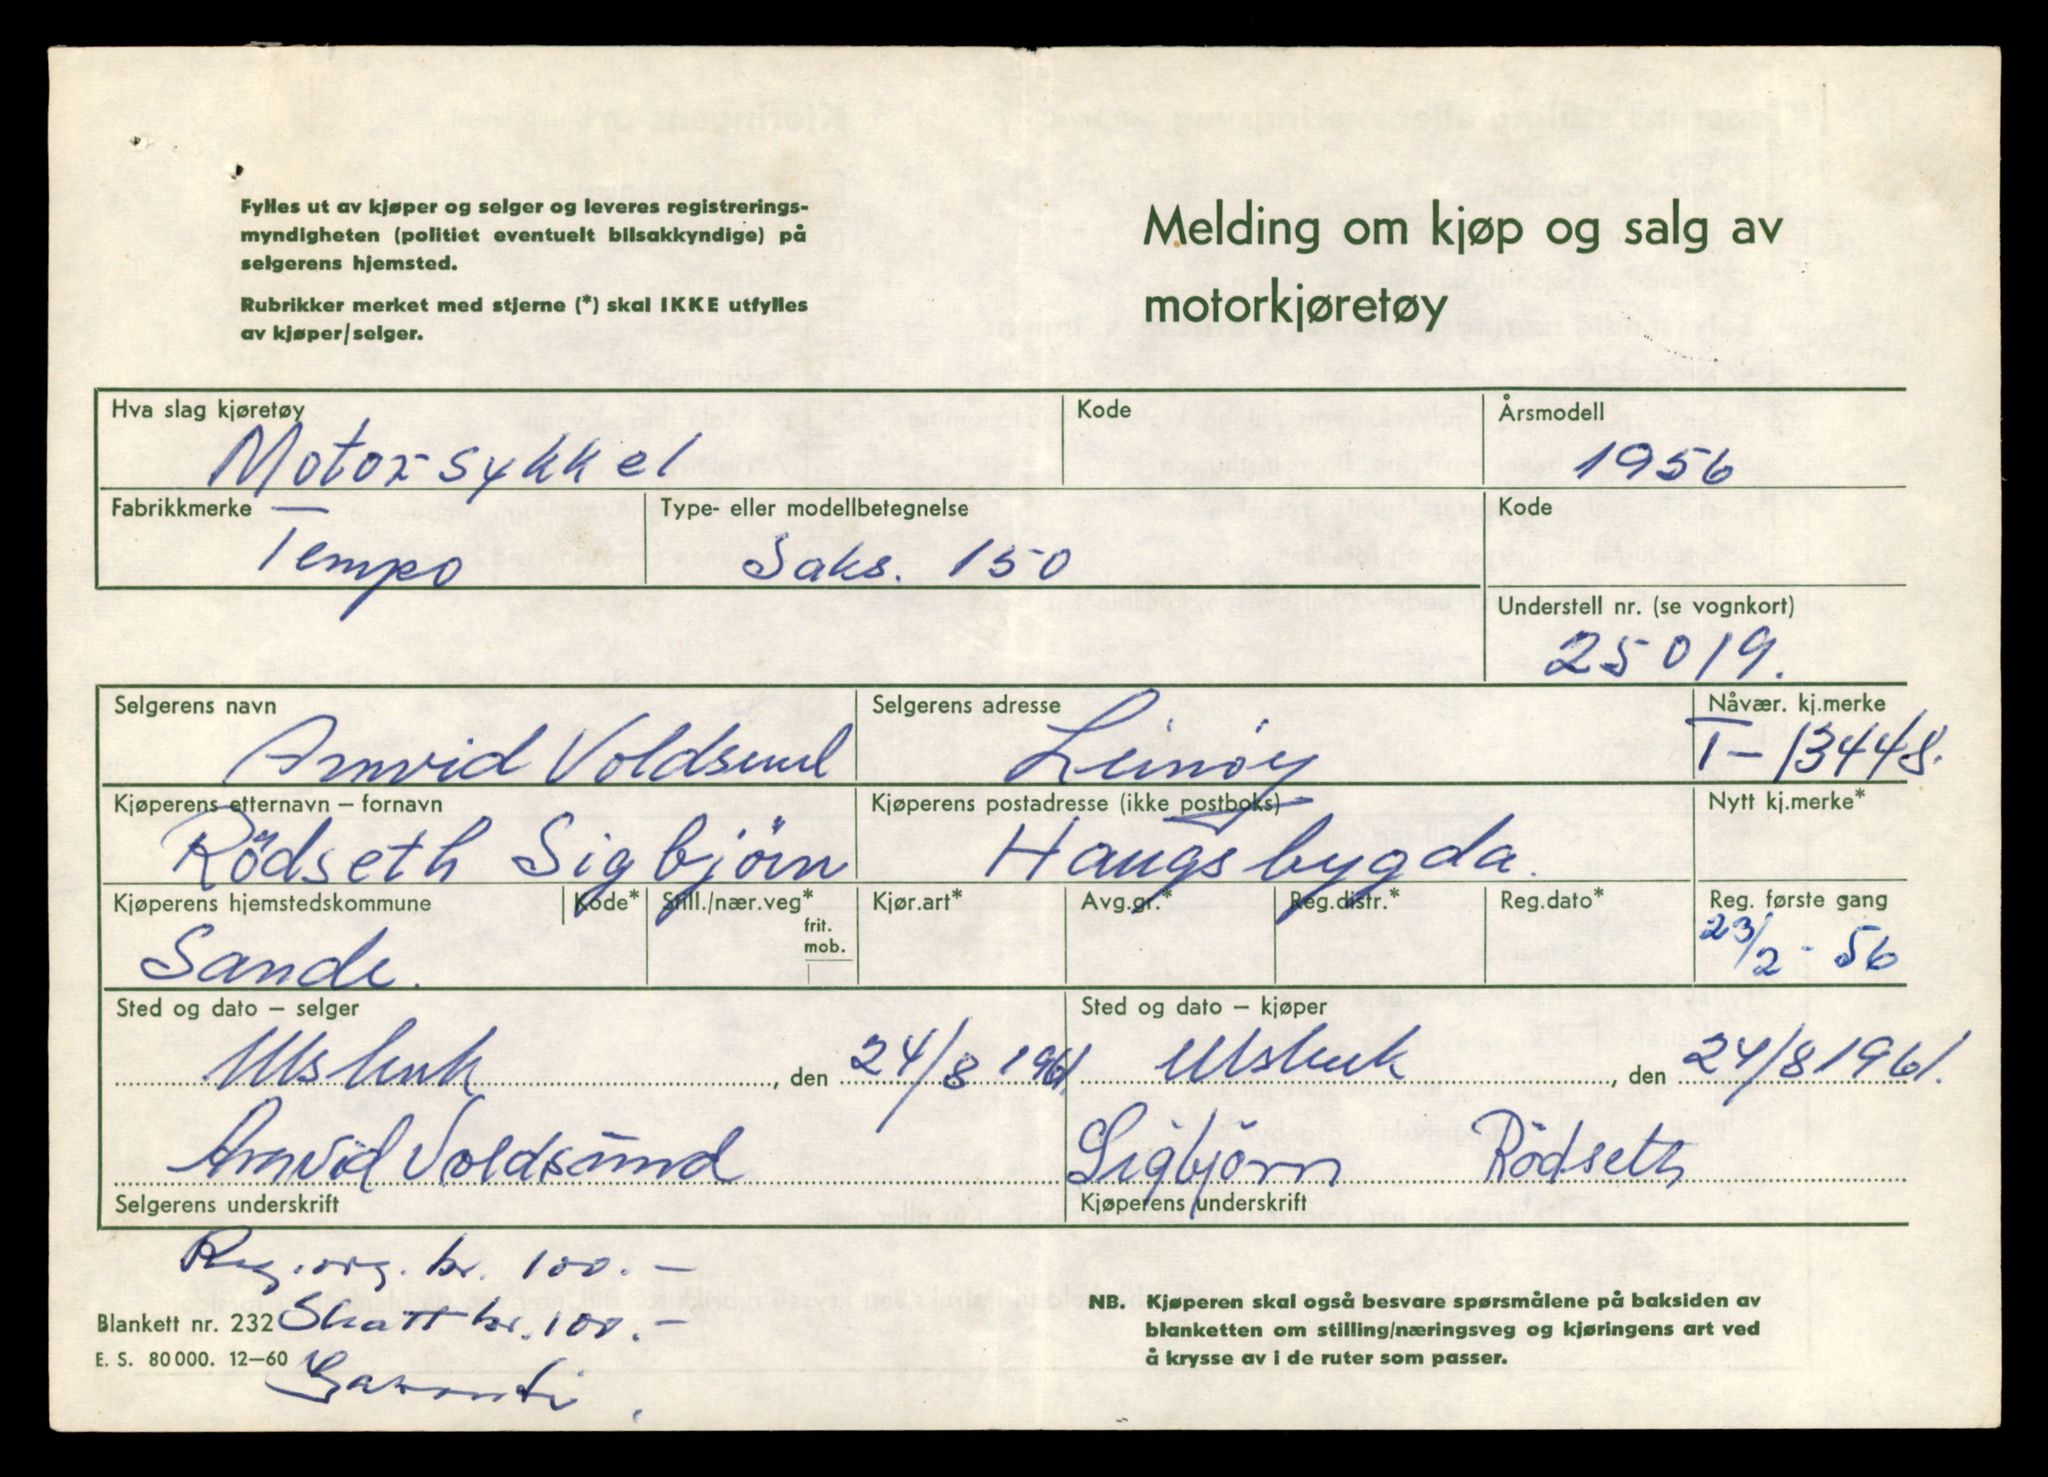 Fylles ut av kjøper og selger og leveres registrerings-
myndigheten (politiet eventuelt bilsakkyndige) på
selgerens hjemsted.
Rubrikker merket med stjerne (*) skal IKKE utfylles
av kjøper/selger.
Melding om kjøp og salg av
motorkjøretøy
Hva slag kjøretøy Kode Årsmodell
Motorsykkel 1956
Fabrikkmerke Type- eller modellbetegnelse Kode
Tempo Saks. 150
Understell nr. (se vognkort)
25019.
Selgerens navn Selgerens adresse Nåvær. kj.merke
Arnvid Voldsund Leinøy T-13448.
Kjøperens etternavn – fornavn Kjøperens postadresse (ikke postboks) Nytt kj.merke*
Rödseth Sigbjörn Haugsbygda.
Kjøperens hjemstedskommune Kode* Still./nær.veg* Kjør.art* Avg.gr.* Reg.distr.* Reg.dato* Reg. første gang
frit.
mob.
Sande. 23/2 - 56
Sted og dato – selger Sted og dato – kjøper
, den 24/8 1961 , den 24/8 1961.
Arnvid Voldsund Sigbjörn Rödseth
Selgerens underskrift Kjøperens underskrift
Reg.avg. kr. 100.-
Blankett nr. 232 Skatt kr. 100.-
E. S. 80 000. 12–60 Garanti.
NB. Kjøperen skal også besvare spørsmålene på baksiden av
blanketten om stilling/næringsveg og kjøringens art ved
å krysse av i de ruter som passer.